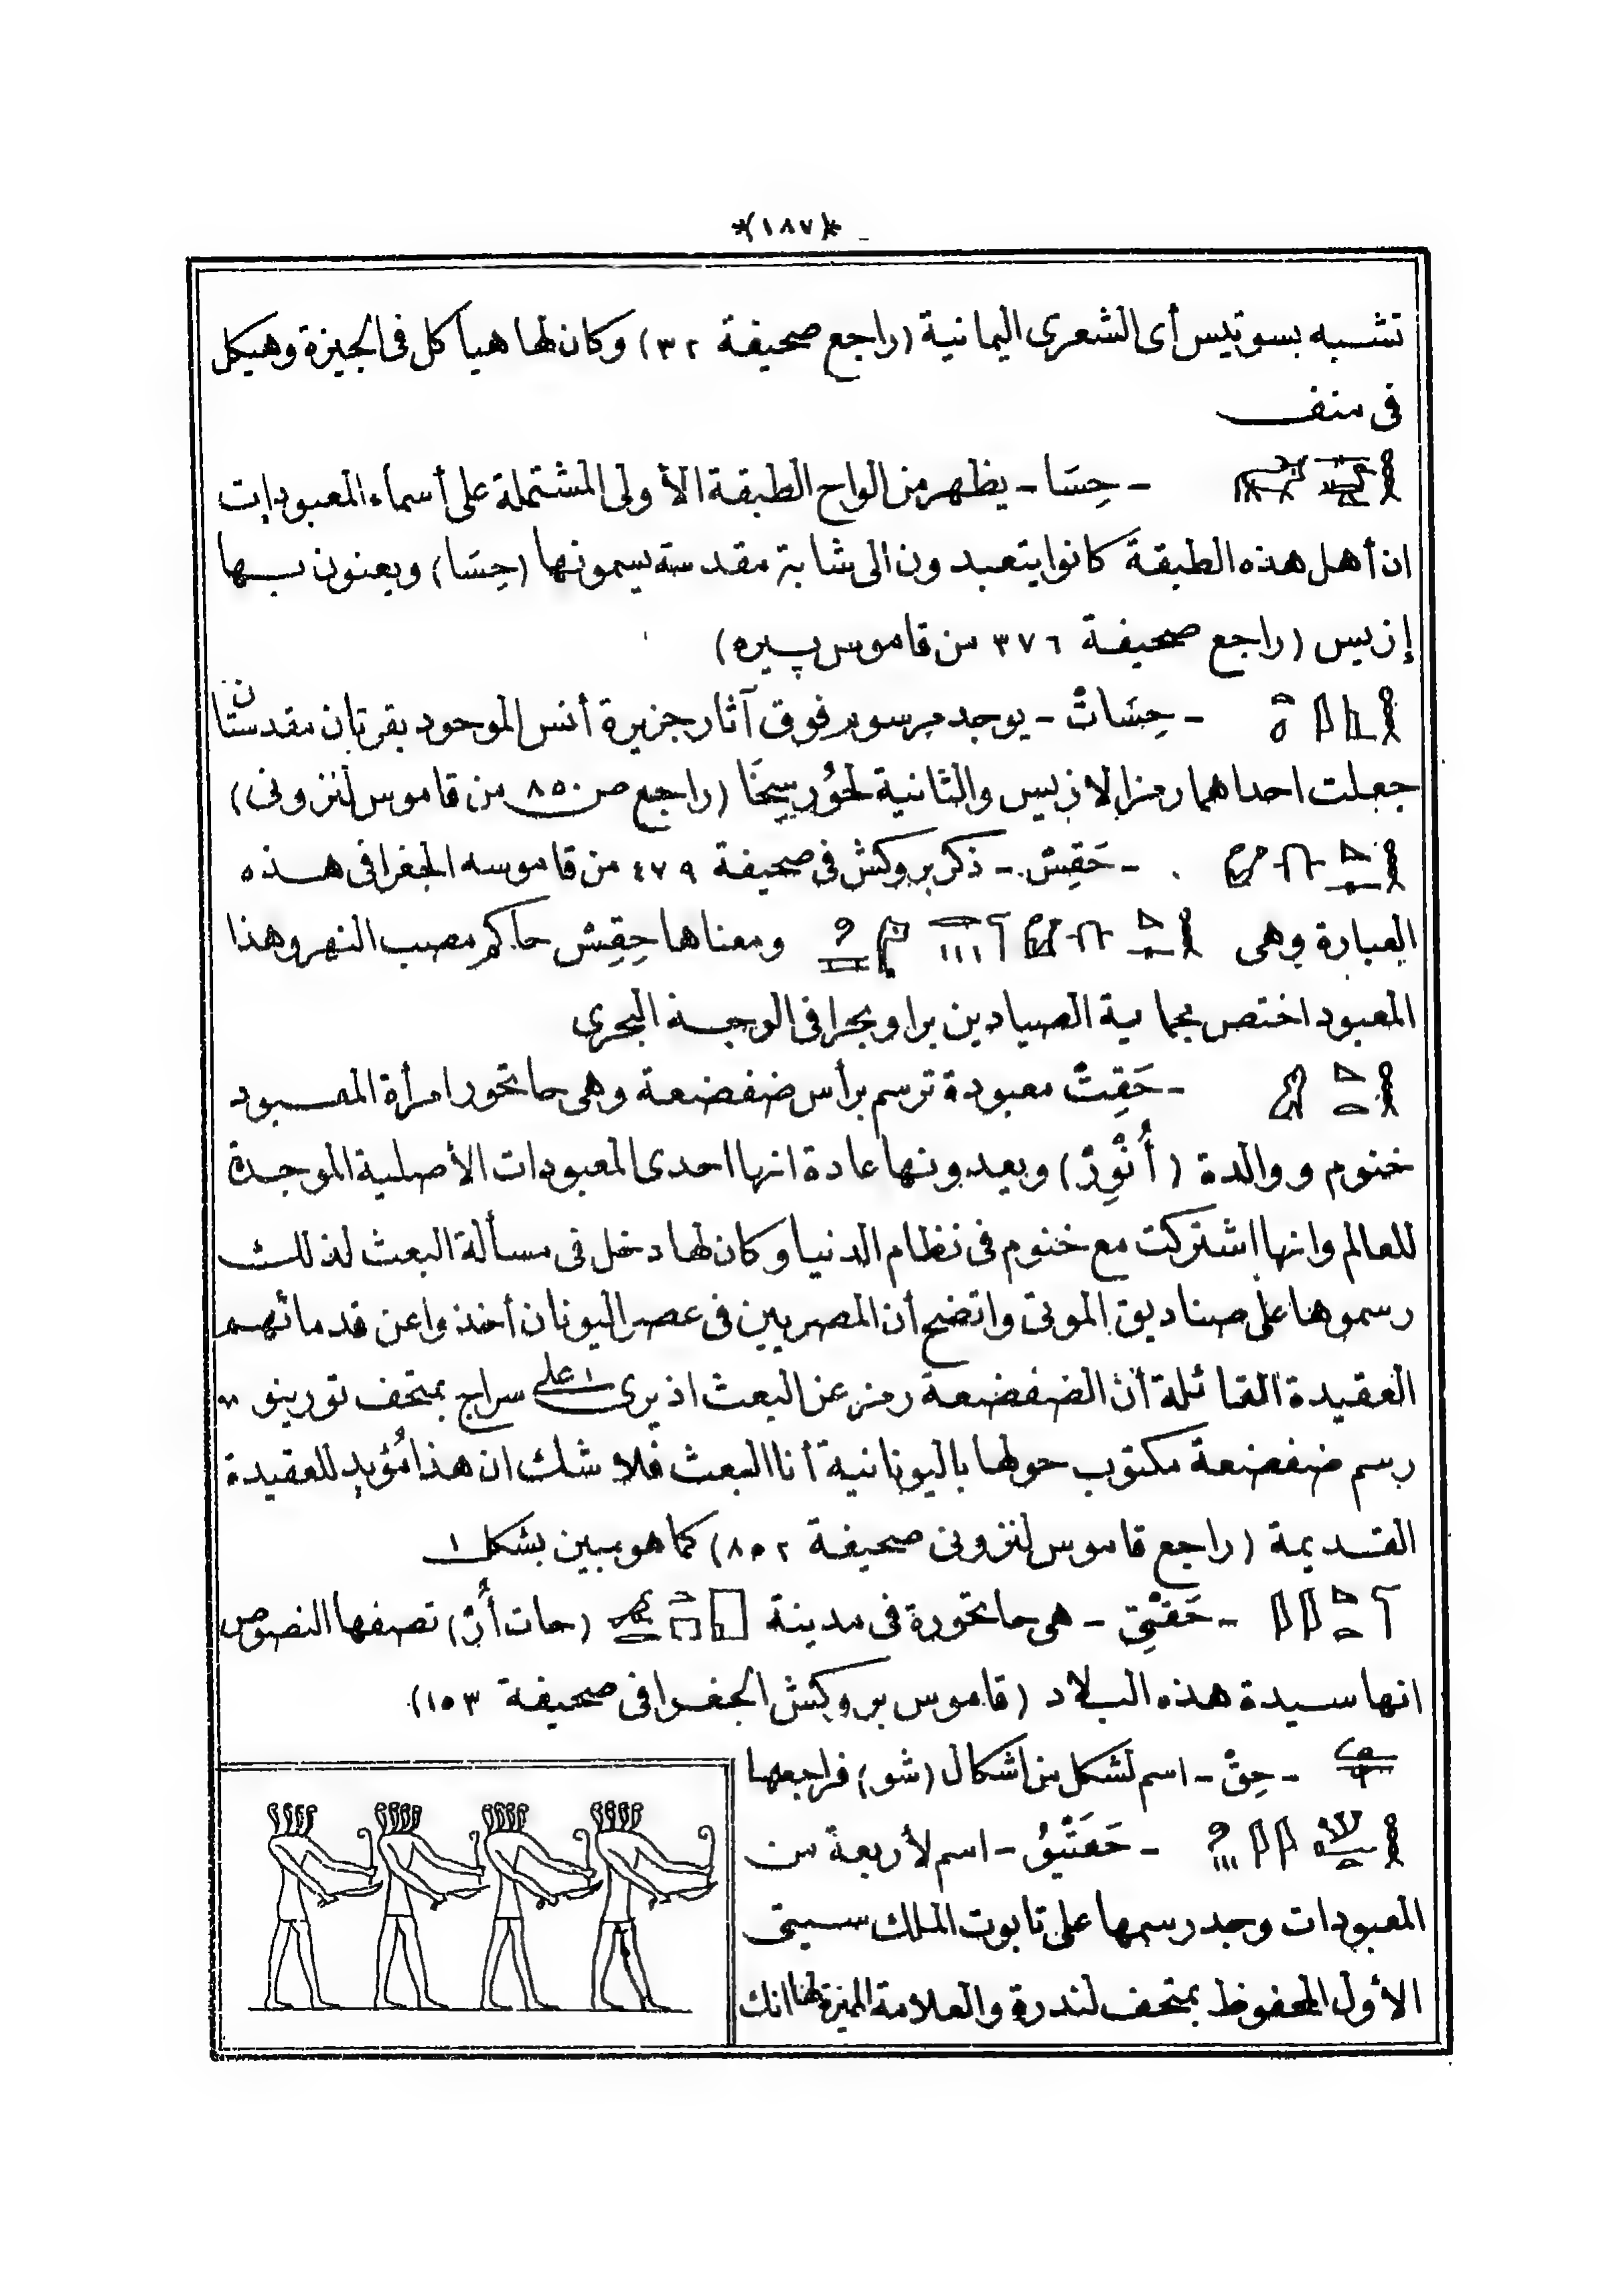 *(١٨٧)*
تشبه بسوتيس أى الشعرى اليمانية (راجع صحيفة ٣٢) وكان لها هياكل فى الجيزة وهيكل
فى منف
- حِسَا - يظهر من الواح الطبقة الأولى المشتملة على أسماء المعبودات
ان أهل هذه الطبقة كانوا يتعبدون الى شابة مقدسة يسمونها (حِسَا) ويعنون بها
إزيس (راجع صحيفة ٣٧٦ من قاموس پيره)
- حِسَاتْ - يوجد مرسوم فوق آثار جزيرة أنس الموجود بقرتان مقدستان
جعلت احداهما رمزا لازيس والثانية لحُورسِخَا (راجع ص ٨٥٠ من قاموس لنزونى)
- حَقِسْ - ذكر بروكش فى صحيفة ٤٧٩ من قاموسه الجغرافى هذه
العبارة وهى ومعناها حِقِسْ حاكم مصب النهر وهذا
المعبود اختص بحماية الصيادين برا وبحرا فى الوجه البحرى
- حَقِتْ معبودة ترسم برأس ضفضعة وهى حاتحور امرأة المعبود
خنوم ووالدة (أُنْوِرْ) ويعدونها عادة انها احدى المعبودات الأصلية الموجدة
للعالم وانها اشتركت مع خنوم فى نظام الدنيا وكان لها دخل فى مسألة البعث لذلك
رسموها على صناديق الموتى واتضح أن المصريين فى عصر اليونان أخذوا عن قدمائهم
العقيدة القائلة أن الضفضعة رمز عن البعث اذ يرى على سراج بمتحف تورينو
رسم ضفضعة مكتوب حولها باليونانية أنا البعث فلا شك ان هذا مُؤيد للعقيدة
القديمة (راجع قاموس لنزونى صحيفة ٨٥٢) كما هو مبين بشكل ١
- حَقْتِى - هى حاتحورة فى مدينة (حات أُرْ) تصفها النصوص
انها سيدة هذه البلاد (قاموس بروكش الجغرافى صحيفة ١٥٣)
- حِقْ - اسم لشكل من اشكال (شو) فراجعها
- حَعَتْيُو - اسم لأربعة من
المعبودات وجد رسمها على تابوت الملك سيتى
الأول المحفوظ بمتحف لندرة والعلامة المميزة لها انك